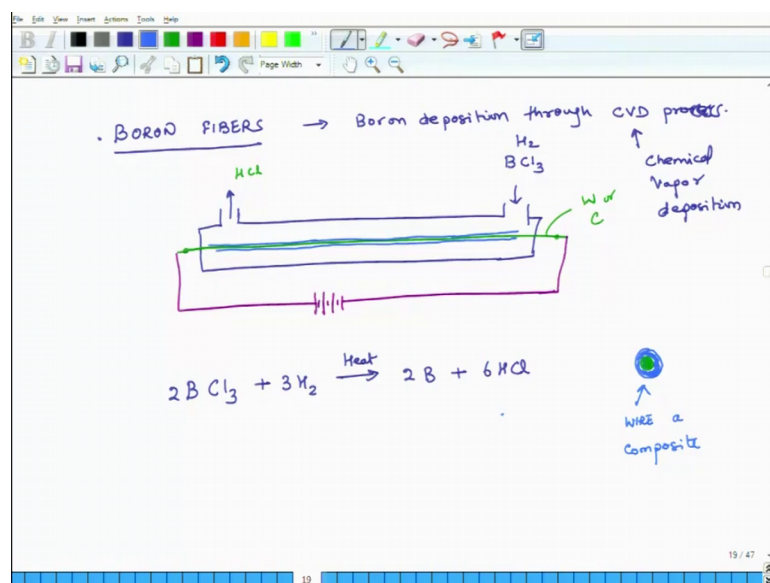 File Edit View Insert Actions Tools Help
Page Width
. BORON FIBERS → Boron deposition through CVD process.
H2
BCl3
HCl
Chemical
vapor
deposition
W or
C
2BCl3 + 3H2 Heat → 2B + 6HCl
WIRE a
Composite
19 / 47
19